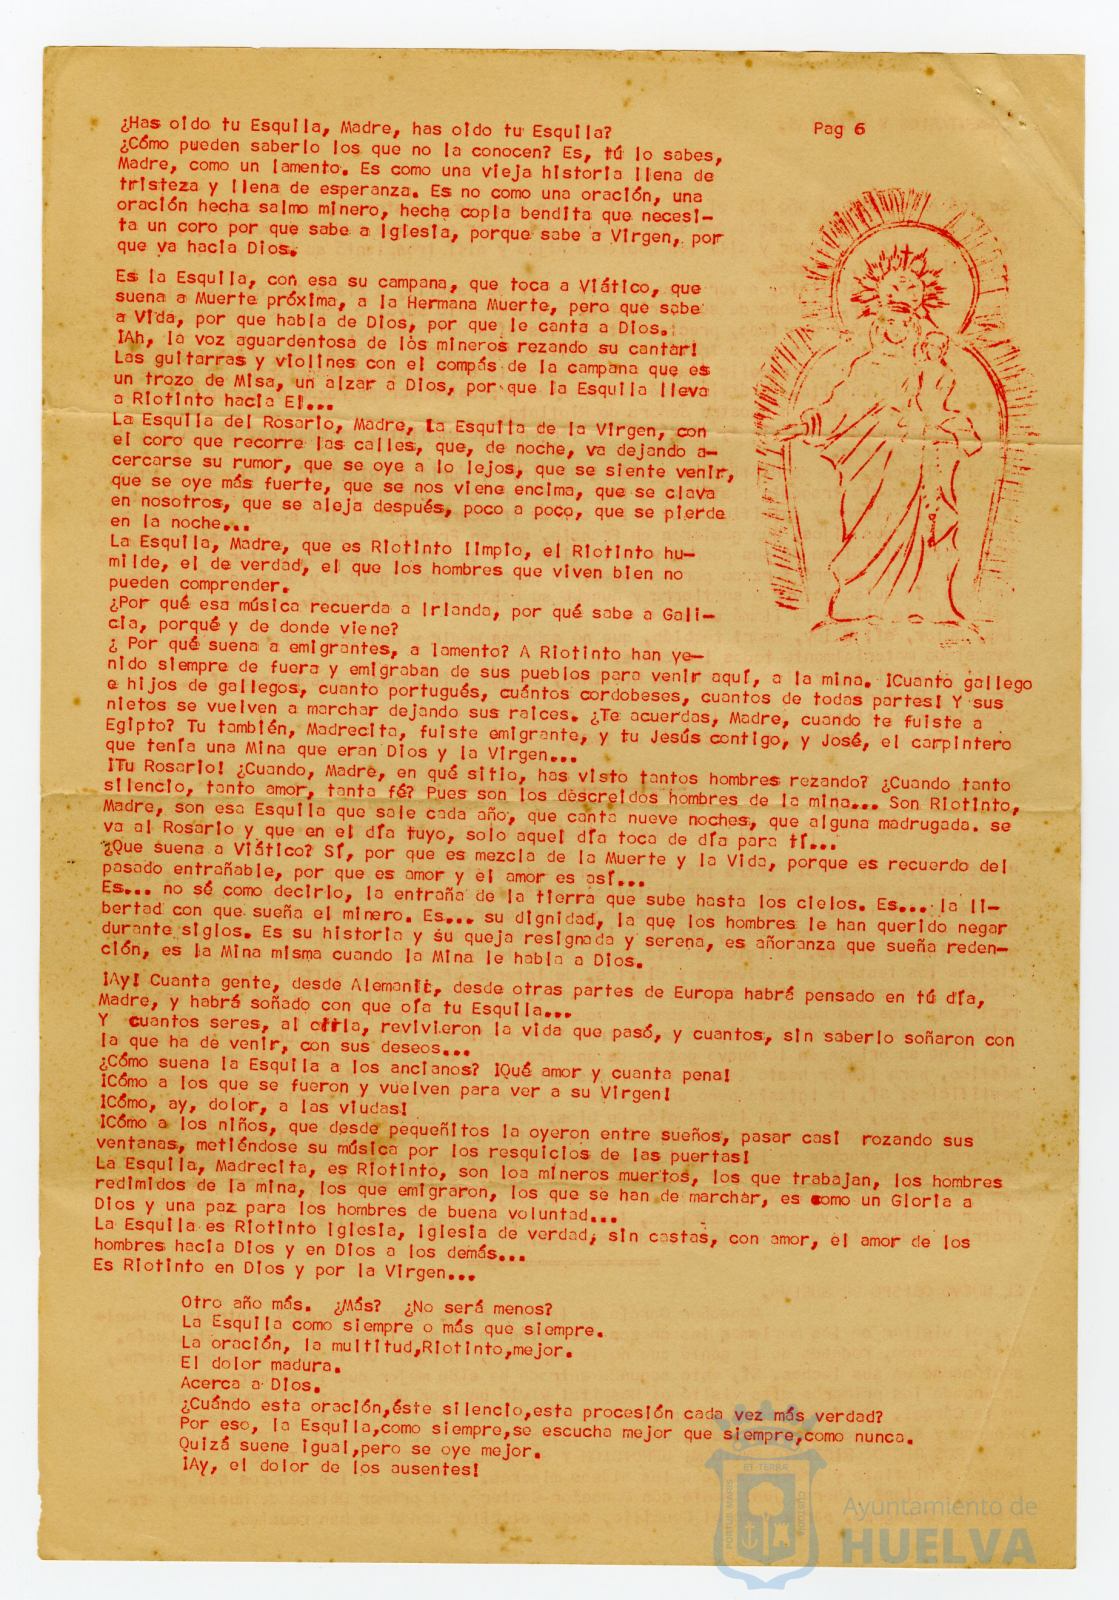 Pag 6
¿Has oído tu Esquila, Madre, has oído tu Esquila?
¿Cómo pueden saberlo los que no la conocen? Es, tú lo sabes,
Madre, como un lamento. Es como una vieja historia llena de
tristeza y llena de esperanza. Es no como una oración, una
oración hecha salmo minero, hecha copla bendita que necesi-
ta un coro por que sabe a Iglesia, porque sabe a Virgen, por
que va hacia Dios.
Es la Esquila, con esa su campana, que toca a Viático, que
suena a Muerte próxima, a la Hermana Muerte, pero que sabe
a Vida, por que habla de Dios, por que le canta a Dios.
¡Ah, la voz aguardentosa de lós mineros rezando su cantar!
Las guitarras y violines con el compás de la campana que es
un trozo de Misa, un alzar a Dios, por que la Esquila lleva
a Riotinto hacia El...
La Esquila del Rosario, Madre, la Esquila de la Virgen, con
el coro que recorre las calles, que, de noche, va dejando a-
cercarse su rumor, que se oye a lo lejos, que se siente venir,
que se oye más fuerte, que se nos viene encima, que se clava
en nosotros, que se aleja después, poco a poco, que se pierde
en la noche...
La Esquila, Madre, que es Riotinto limpio, el Riotinto hu-
milde, el de verdad, el que los hombres que viven bien no
pueden comprender.
¿Por qué esa música recuerda a Irlanda, por qué sabe a Gali-
cia, porqué y de donde viene?
¿ Por qué suena a emigrantes, a lamento? A Riotinto han ve-
nido siempre de fuera y emigraban de sus pueblos para venir aquí, a la mina. ¡Cuanto gallego
e hijos de gallegos, cuanto portugués, cuántos cordobeses, cuantos de todas partes! Y sus
nietos se vuelven a marchar dejando sus raices. ¿Te acuerdas, Madre, cuando te fuiste a
Egipto? Tu también, Madrecita, fuiste emigrante, y tu Jesús contigo, y José, el carpintero
que tenía una Mina que eran Dios y la Virgen...
¡Tu Rosario! ¿Cuando, Madre, en qué sitio, has visto tantos hombres rezando? ¿Cuando tanto
silencio, tanto amor, tanta fé? Pues son los descreidos hombres de la mina... Son Riotinto,
Madre, son esa Esquila que sale cada año, que canta nueve noches, que alguna madrugada. se
va al Rosario y que en el día tuyo, solo aquel día toca de día para tí...
¿Que suena a Viático? Sí, por que es mezcla de la Muerte y la Vida, porque es recuerdo del
pasado entrañable, por que es amor y el amor es así...
Es... no sé como decirlo, la entraña de la tierra que sube hasta los cielos. Es... la li-
bertad con que sueña el minero. Es... su dignidad, la que los hombres le han querido negar
durante siglos. Es su historia y su queja resignada y serena, es añoranza que sueña reden-
ción, es la Mina misma cuando la Mina le habla a Dios.
¡Ay! Cuanta gente, desde desde otras partes de Europa habrá pensado en tú día,
Madre, y habrá soñado con que oía tu Esquila...
Y cuantos seres, al revivieron la vida que pasó, y cuantos, sin saberlo soñaron con
la que ha de venir, con sus deseos...
¿Cómo suena la Esquila a los ancianos? ¡Qué amor y cuanta pena!
¡Cómo a los que se fueron y vuelven para ver a su Virgen!
¡Cómo, ay, dolor, a las viudas!
¡Cómo a los niños, que desde pequeñitos la oyeron entre sueños, pasar casi rozando sus
ventanas, metiéndose su música por los resquicios de las puertas!
La Esquila, Madrecita, es Riotinto, son loa mineros muertos, los que trabajan, los hombres
redimidos de la mina, los que emigraron, los que se han de marchar, es como un Gloria a
Dios y una paz para los hombres de buena voluntad...
La Esquila es Riotinto Iglesia, Iglesia de verdad, sin castas, con amor, el amor de los
hombres hacia Dios y en Dios a los demás...
Es Riotinto en Dios y por la Virgen...
Otro año más. ¿Más? ¿No será menos?
La Esquila como siempre o más que siempre.
La oración, la multitud,Riotinto,mejor.
El dolor madura.
Acerca a Dios.
¿Cuándo esta oración,éste silencio,esta procesión cada vez más verdad?
Por eso, la Esquila,como siempre,se escucha mejor que siempre,como nunca.
Quizá suene igual,pero se oye mejor.
¡Ay, el dolor de los ausentes!
PORTUS MARIS
ET TERRÆ
CUSTODIA
Ayuntamiento de
HUELVA